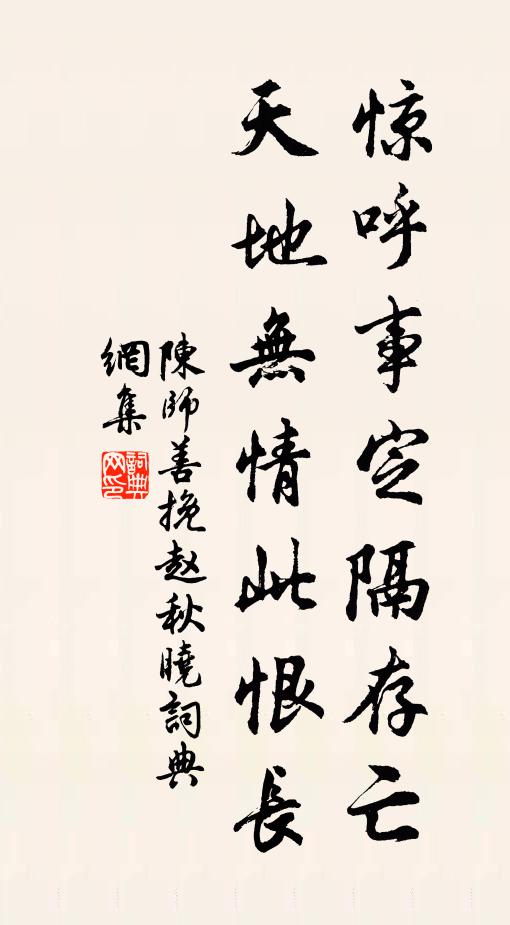 惊呼事定隔存亡
天地無情此恨長
陳師善挽赵秋曉詞典
網集
詞典
网印